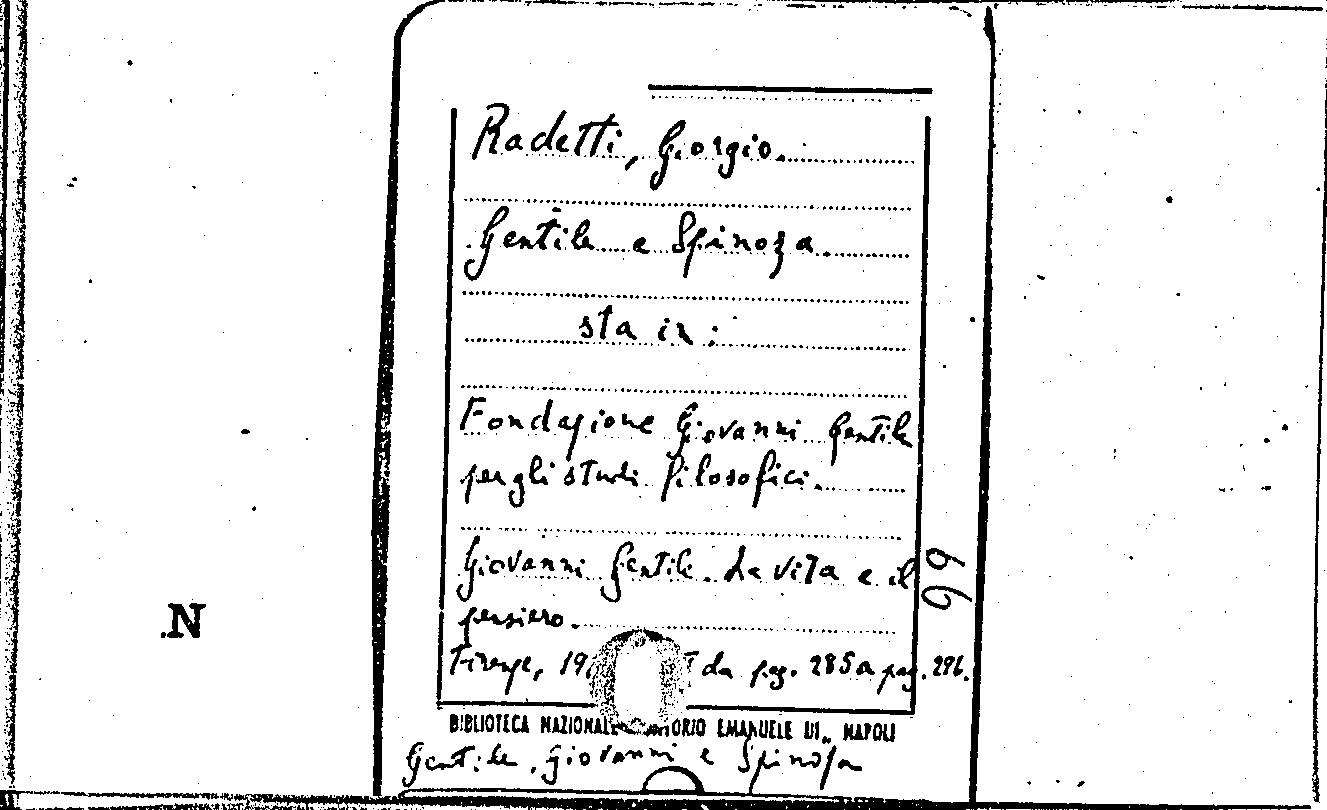 Radetti, Giorgio.
Gentile e Spinoza.
sta in:
Fondazione Giovanni Gentile
per gli studi filosofici.
Giovanni Gentile. La vita e il
pensiero.
Firenze, 19 da pag. 285 a pag. 296.
BIBLIOTECA NAZIONALE VITTORIO EMANUELE III,, NAPOLI
Gentile, Giovanni e Spinoza
66
N